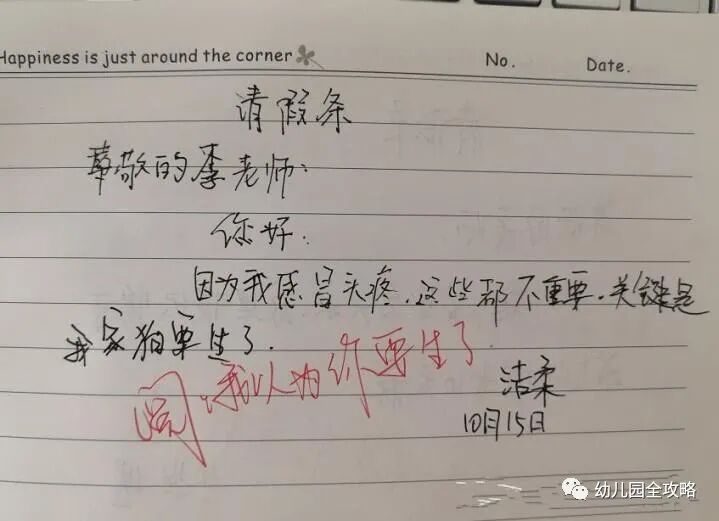 Happiness is just around the corner
No.
Date.
请假条
尊敬的李老师:
您好:
因为我感冒头疼.这些都不重要.关键是
我家狗要生了.
阅,我以为你要生了
洁柔
10月15日
幼儿园全攻略